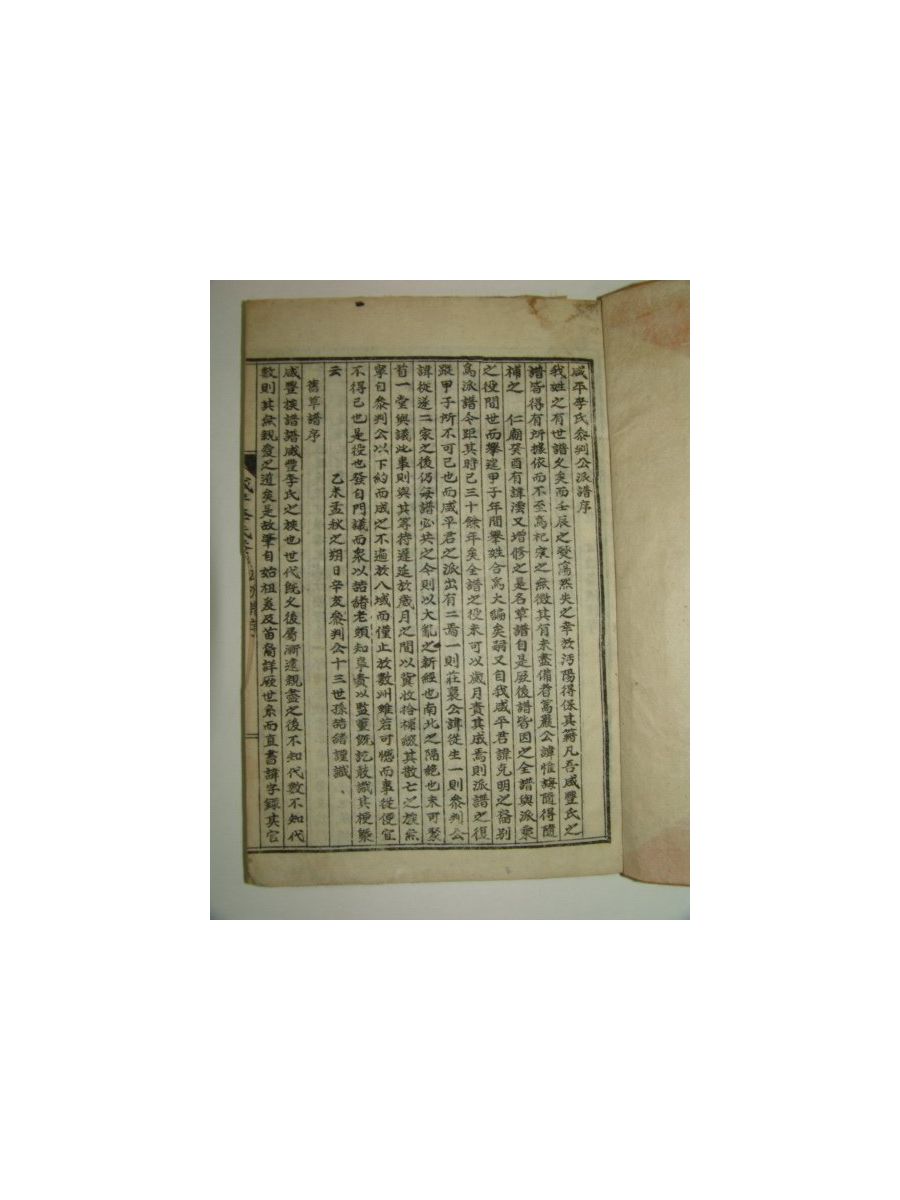 咸平李氏參判公派譜序
我姓之有世譜久矣而壬辰之燹蕩然失之幸於沔陽得保其籍凡吾咸豐氏之
譜皆得有所據依而不至爲杞宋之無徵其有未盡備者篤巖公諱惟誨隨得隨
補之 仁廟癸酉有諱澐又增修之是名草譜自是厥後譜皆因之全譜與派乘
之役間世而擧逮甲子年間擧姓合爲大編矣嗣又自我咸平君諱克明之裔別
爲派譜今距其時已三十餘年矣全譜之役未可以歲月責其成焉則派譜之復
踵甲子所不可已也而咸平君之派出有二焉一則莊襄公諱從生一則參判公
諱從遂二家之後仍每譜必共之今則以大亂之新經也南北之隔絶也未可聚
首一堂與議此事則與其等待遲延於歲月之間以冀收拾櫛綴其散亡之族無
寧自參判公以下約而成之不過於八域而僅止於數州雖若可憾而事從便宜
不得已也是役也發自門議而衆以諮諸老頭知阜貴以監董旣訖敢識其梗槩
云
乙未孟秋之朔日辛亥參判公十三世孫 謹識
舊草譜序
咸豐族譜譜咸豐李氏之族也世代旣久後屬漸遠親盡之後不知代數不知代
數則其無親愛之道矣是故肇自始祖爰及苗裔詳厥世系而直書諱字錄其官
咸平李氏